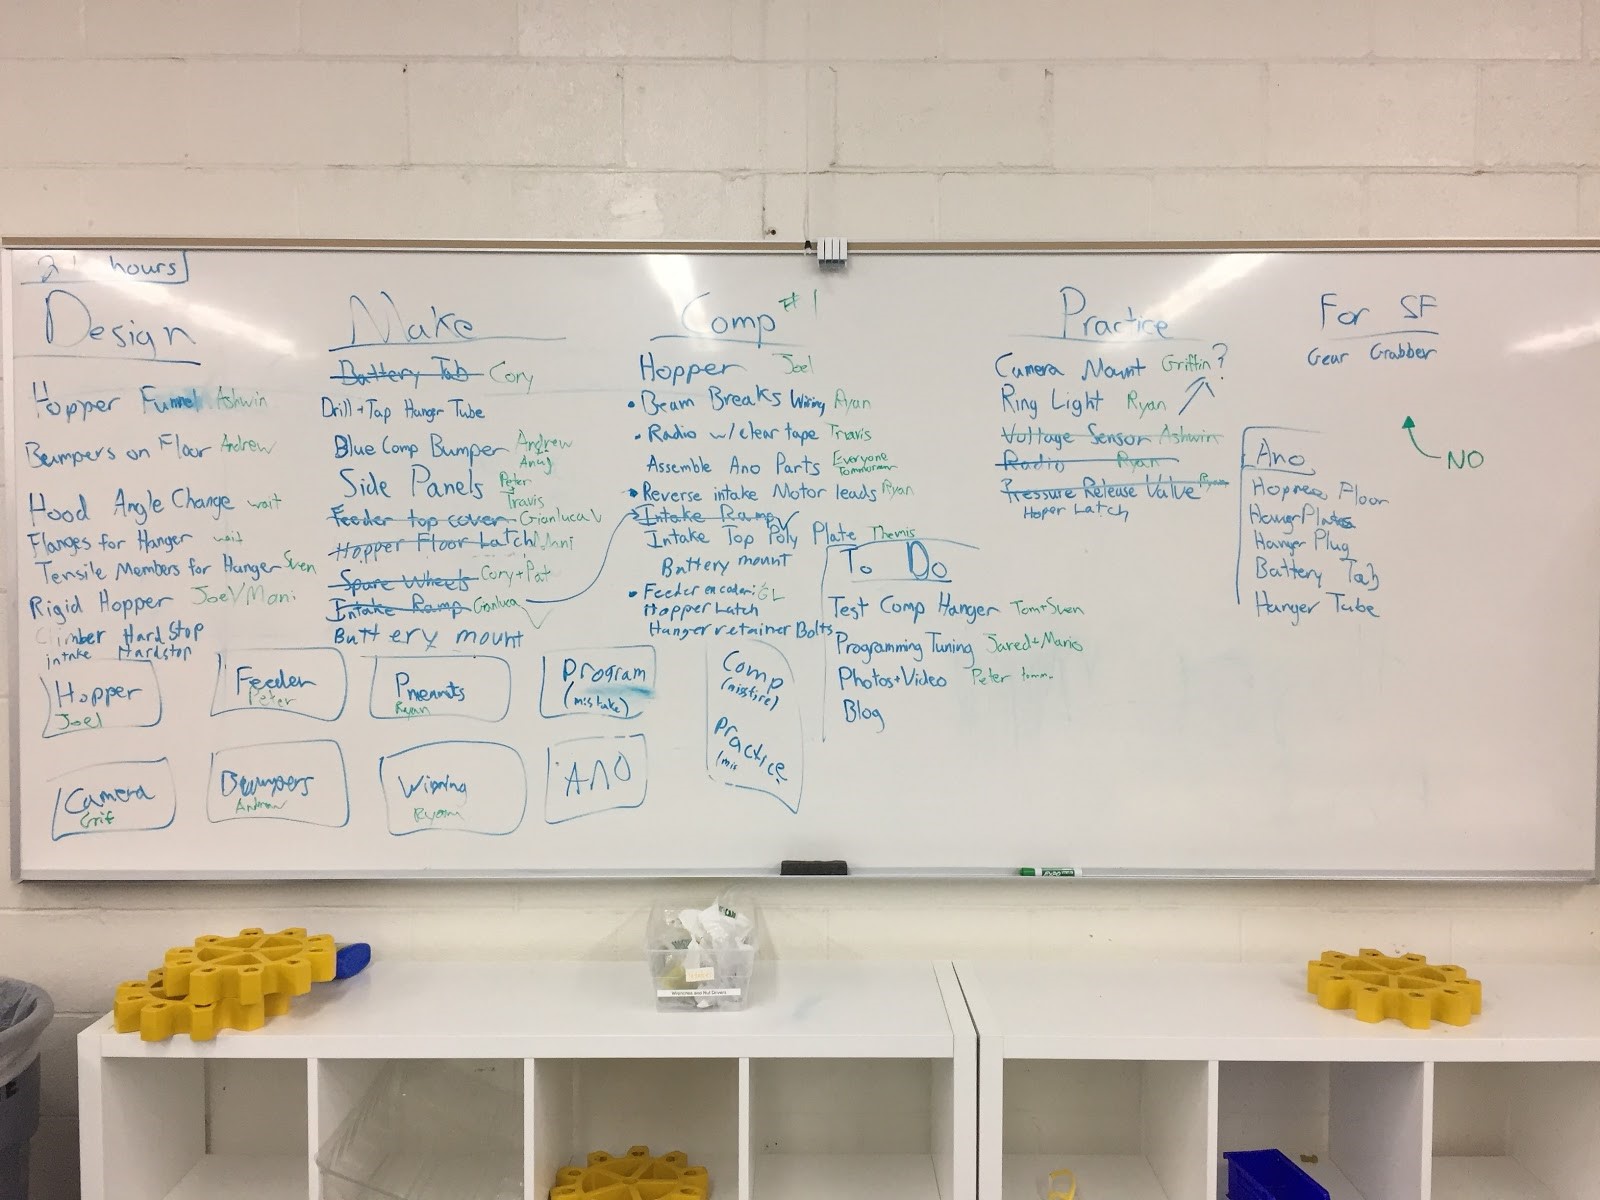 hours
Design
Hopper Funnel Ashwin
Bumpers on Floor Andrew
Hood Angle Change wait
Flanges for Hanger wait
Tensile Members for Hanger Sven
Rigid Hopper Joel/Mani
Climber Hard Stop
intake Hardstop
Make
Battery Tab Cory
Drill + Tap Hanger Tube
Blue Comp Bumper Andrew
Anuj
Side Panels Peter
Travis
Feeder top cover Gianluca V
Hopper Floor Latch Mani
Spare Wheels Cory + Pat
Intake Ramp Gianluca
Buttery mount
Comp #1
Hopper Joel
• Beam Breaks Wiring Ryan
• Radio w/ clear tape Travis
Assemble Ano Parts Everyone
Tommorrow
Reverse intake Motor leads Ryan
Intake Ramp
Intake Top Poly Plate Themis
Battery mount
• Feeder encoder: GL
Hopper Latch
Hanger retainer Bolts
To Do
Test Comp Hanger Tom+Sven
Programming Tuning Jared+Mario
Photos+Video Peter tomm.
Blog
Practice
Camera Mount Griffin?
Ring Light Ryan
Voltage Sensor Ashwin
Radio Ryan
Pressure Release Valve Ryan
Hoper Latch
For SF
Gear Grabber
NO
Ano
Hopper Floor
Hanger Plates
Hanger Plug
Battery Tab
Hanger Tube
Hopper
Joel
Feeder
Peter
Pneamts
Ryan
Program
(mistake)
Comp
(misfire)
Practice
(mis
Camera
Grif
Bumpers
Andrew
Wirring
Ryan
ANO
EXPO
Wrenches and Nut Drivers